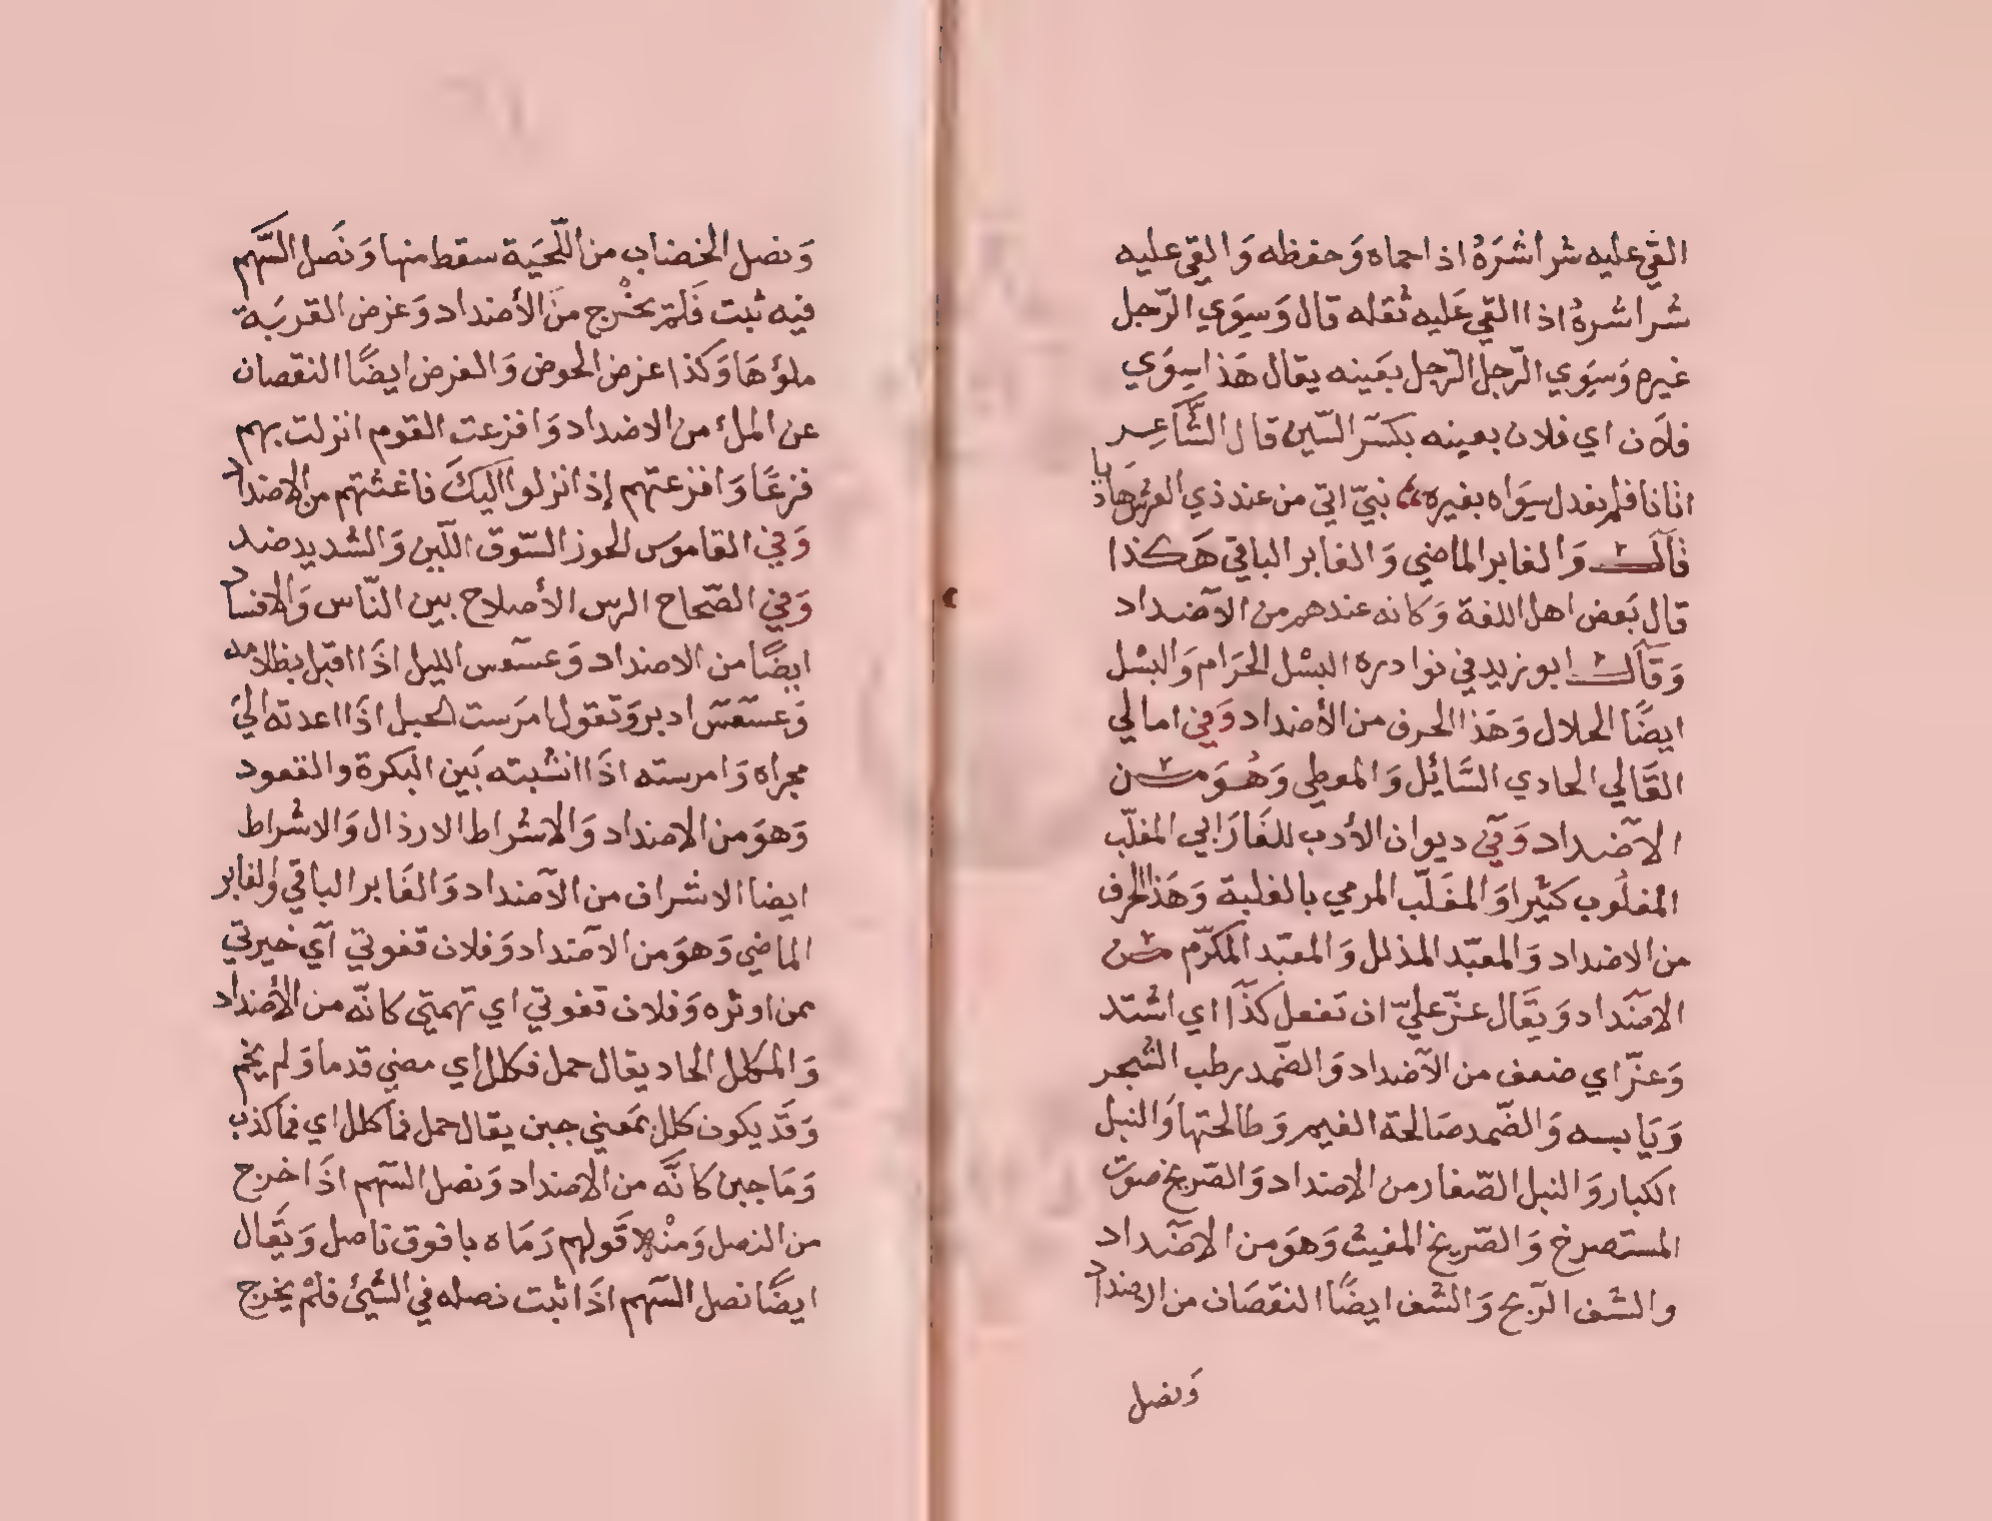 القي عليه شراشَرَهُ اذا حماه وَحفظه وَالقي عليه
شراشرهُ اذا القي عَليه ثقله قال وَسِوَي الرّجل
غيره وَسِوَي الرّجل الرّجل بعَينه يقال هَذا سِوَي
فلَان اي فلان بعينه بكسَر السّين قال الشَّاعِر
اتانا فلم نعدل سِوَاه بغيره نبيّ اتي من عند ذي العرْش هَاديا
قالَ وَالغابر الماضي وَالغابر الباقي هَكذا
قال بَعض اهل اللغة وَكانه عندهم من الاَضداد
وَقالَ ابو زيد في نوادره البسْل الحرَام وَالبسْل
ايضًا الحلال وَهَذا الحرف من الأضداد وَفي امالي
القَالي الحادي السَّايُل وَالمعطي وَهُوَ من
الاَضداد وَفي ديوان الأدب للفَارَابي المغلّب
المغلُوب كثيرا وَالمغَلّب المرمي بالغلبة وَهَذا الحرف
من الاضداد وَالمعبّد المذلل وَالمعبّد المكرّم من
الاضَداد وَيقَال عزّ عليّ ان تَفعل كذَا اي اشتد
وَعزّ اي ضعف من الاَضداد وَالضّمد رطب الشجر
وَيَابسه وَالضّمد صَالحة الغنم وَطالحتها وَالنبل
الكبار وَالنبل الصّغار من الاضداد وَالصّريخ صوت
المستصرخ وَالصّريخ المغيث وَهوَ من الاضَداد
والشف الرّبح وَالشف ايضًا النقصَان من الاضداد
وَنصل
وَنصل الخضاب من اللّحيَة سقط منها وَنصَل السَّهم
فيه ثبت فَلم يخْرج منَ الأضداد وَغرض القربَة
ملؤهَا وَكذا غرض الحوض وَالغرض ايضًا النقصان
عن الملئ من الاضداد وَافزعت القوم انزلت بهم
فزعًا وَافزعتهم إذ انزلوا اليكَ فاغثتهم من الاضداد
وَفي القاموس الحوز السّوق اللّين وَالشديد ضد
وَفي الصّحاح الرس الأصلاح بين النّاس وَالافساد
ايضًا من الاضداد وَعسَعس الليل اذَا اقبل بظلامه
وَعسعَس ادبر وَتقول امرَست الحبل اذَا اعدته اليَ
مجراه وَامرسته اذَا انشبته بَين البكرة والقعود
وَهوَ من الاضداد وَالاشراط الارذال وَالاشراط
ايضا الاشراف من الاَضداد وَالغَابر الباقي وَالغابر
الماضي وَهوَ من الاَضداد وَفلان قفوتي اَي خيرتي
ممن اوثره وَفلان قفوتي اي تهمتي كانّه من الأضداد
وَالمكلل الجاد يقال حمل فكلل اي مضي قدما وَلم يخم
وَقَد يكون كلل بمَعني جبن يقال حمل فمَا كلل اي فما كذب
وَمَا جبن كانَّه من الاضداد وَنصل السّهم اذَا خرج
من النصل وَمنْه قَولهم رَمَاه بافوق ناصل وَيقَال
ايضًا نصل السّهم اذَا ثبت نصله في الشّيئ فلمْ يخرج